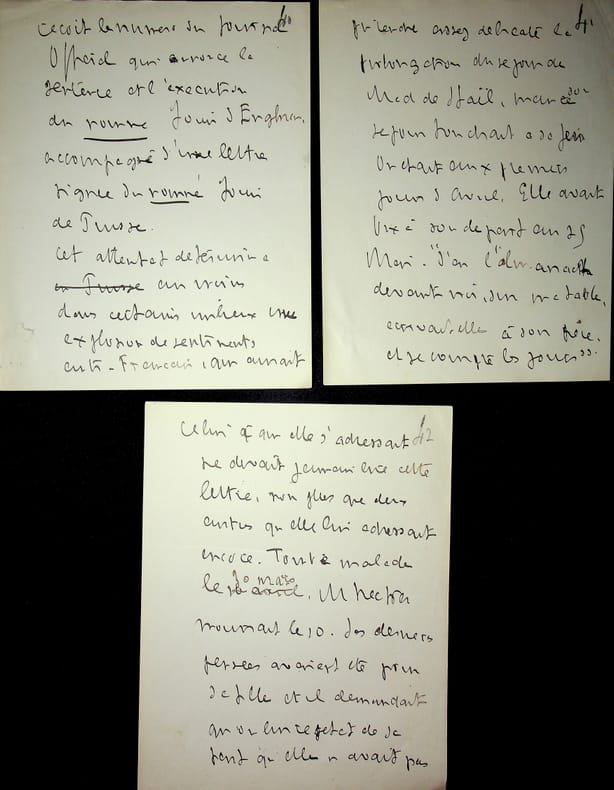 40
reçoit le numéro du Journal
Officiel qui annonce la
sentence et l'exécution
du nommé Louis d'Enghien,
accompagné d'une lettre
signée du nommé Louis
de Prusse.
Cet attentat détermina
en Prusse au moins
dans certains milieux une
explosion de sentiments
anti-Français, qui aurait
41
pu rendre assez délicate la
prolongation du séjour de
Mad de Staël, mais son
séjour touchait à sa fin
On était aux premiers
jours d'Avril. Elle avait
fixé son départ au 25
Mai. "J'ai l'almanach
devant moi, sur ma table,
écrivait-elle à son père,
et je compte les jours".
42
Celui à qui elle s'adressait
ne devait jamais lire cette
lettre, non plus que deux
autres qu'elle lui adressait
encore. Tombé malade
le 30 mars avril, M Necker
mourait le 10. Ses dernières
pensées avaient été pour
sa fille et il demandait
qu'on lui répétât de sa
part qu'elle n'avait pas